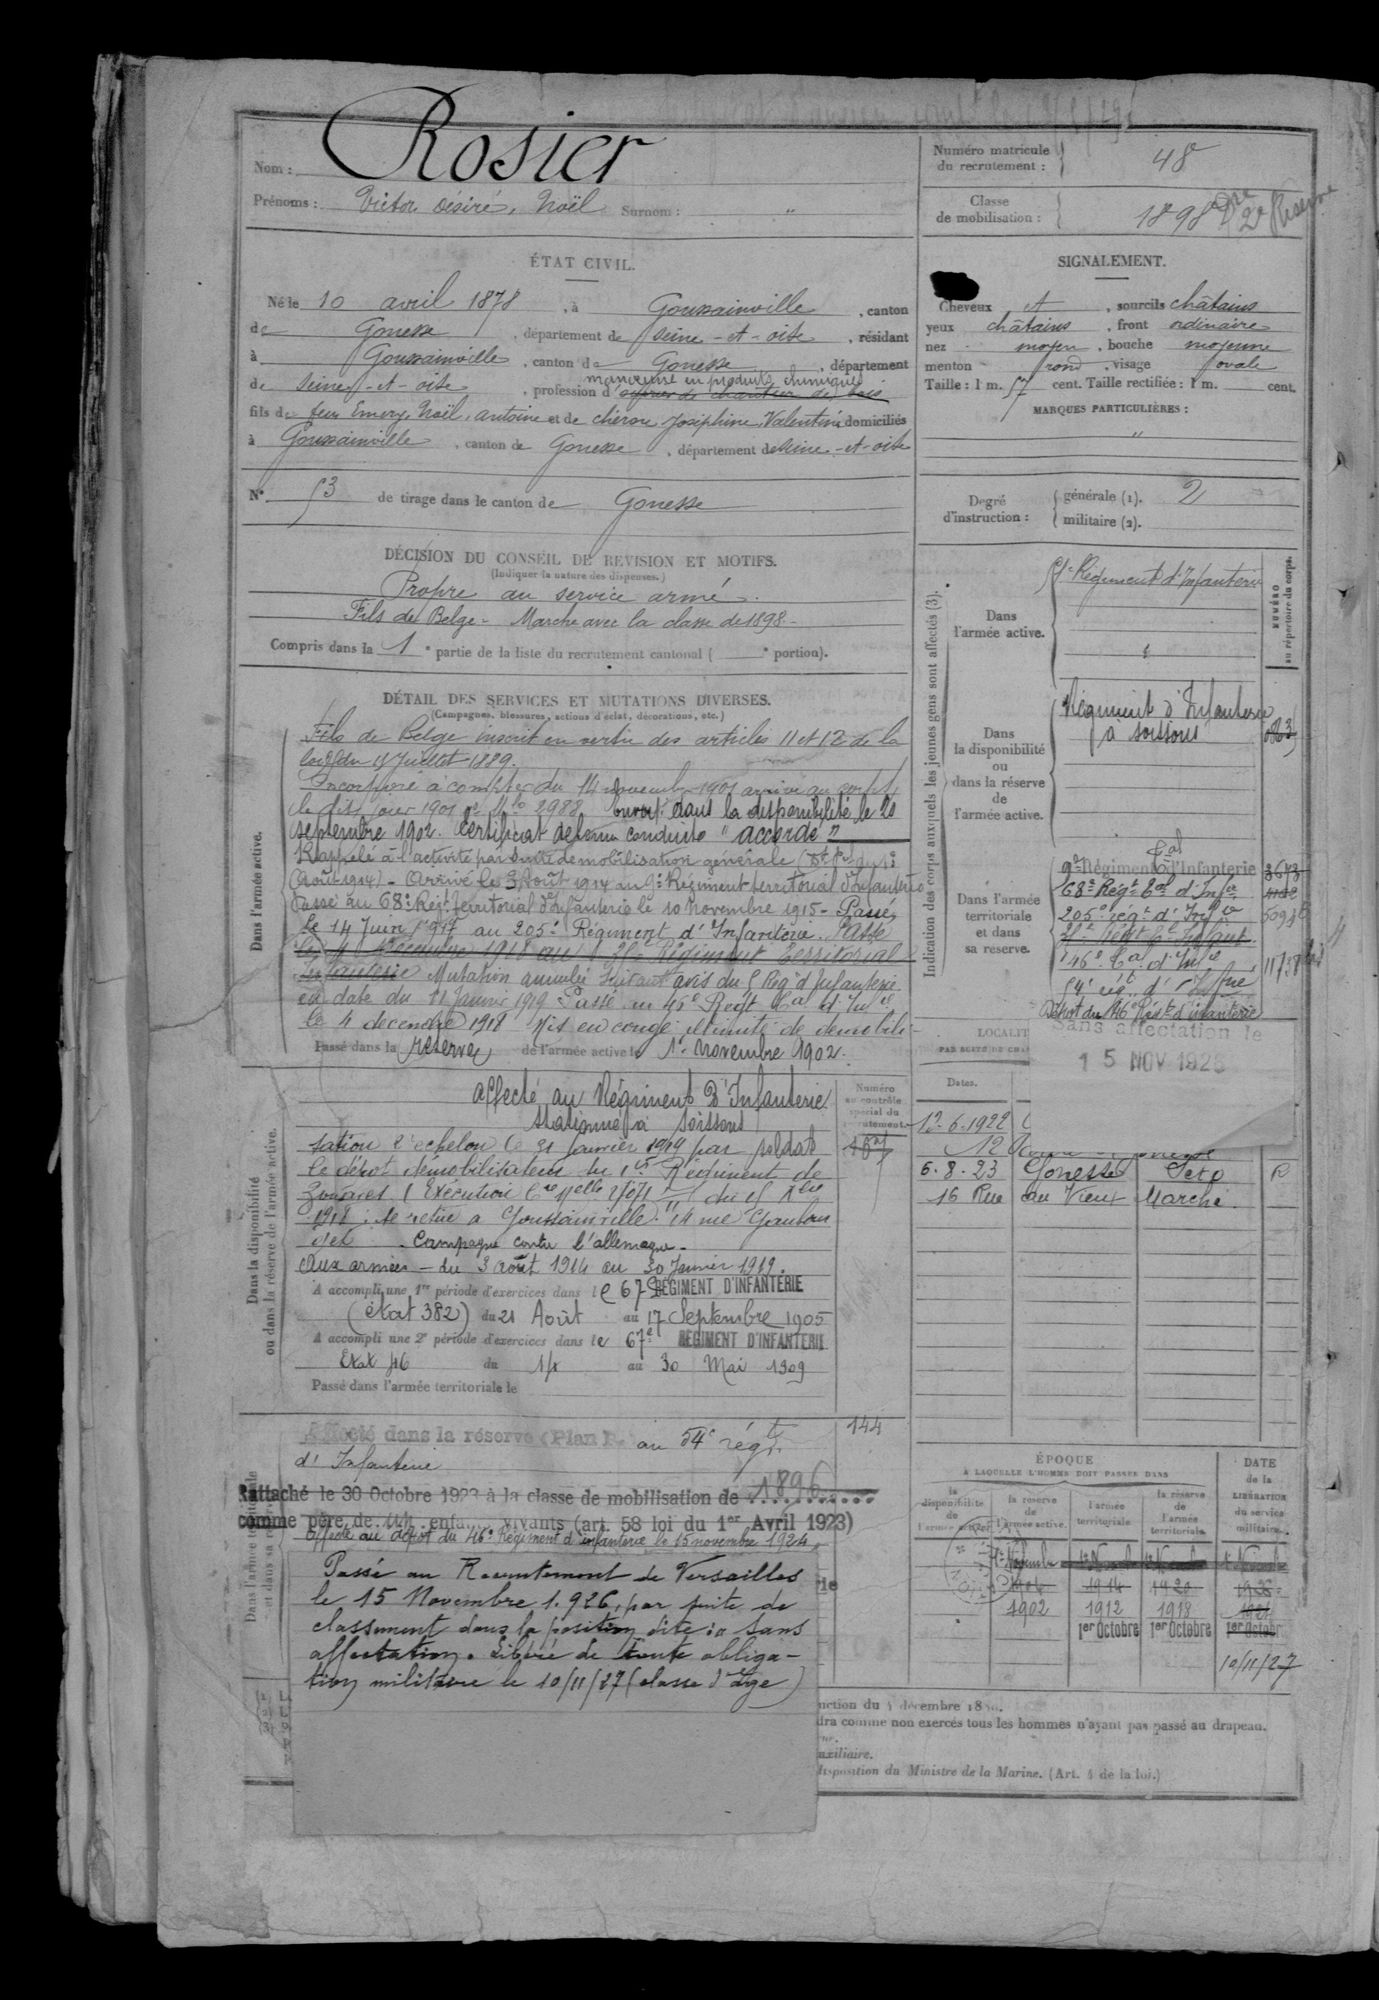 Nom : Rosier
Prénoms : Victor Désiré, Noël Surnom : "
Numéro matricule du recrutement : 48
Classe de mobilisation : 1898
2e Réserve
ÉTAT CIVIL.
Né le 10 avril 1878, à Goussainville, canton
de Gonesse, département de Seine-et-Oise, résidant
à Goussainville, canton de Gonesse, département
manoeuvre en produits chimiques
de Seine-et-Oise, profession d'ouvrier de chantier de bois
fils de feu Emery, Noël, Antoine et de Chéron Joséphine, Valentine domiciliés
à Goussainville, canton de Gonesse, département de Seine-et-Oise
N° 53 de tirage dans le canton de Gonesse
SIGNALEMENT.
Cheveux et, sourcils châtains
yeux châtains, front ordinaire
nez moyen, bouche moyenne
menton rond, visage ovale
Taille : 1 m. 57 cent. Taille rectifiée : 1 m. cent.
MARQUES PARTICULIÈRES :
"
Degré d'instruction : générale (1). 2
militaire (2).
DÉCISION DU CONSEIL DE REVISION ET MOTIFS.
(Indiquer la nature des dispenses.)
Propre au service armé.
Fils de Belge - Marche avec la classe de 1898 -
Compris dans la 1e partie de la liste du recrutement cantonal ( e portion).
DÉTAIL DES SERVICES ET MUTATIONS DIVERSES.
(Campagnes, blessures, actions d'éclat, décorations, etc.)
Dans l'armée active.
Fils de Belge inscrit en vertu des articles 11 et 12 de la
loi du 15 Juillet 1889.
Incorporé à compter du 14 novembre 1901 arrivé au corps
le dit jour 1901 no Mle 2988 envoyé dans la disponibilité le 20
septembre 1902. Certificat de bonne conduite "accordé"
Rappelé à l'activité par suite de mobilisation générale (
Août 1914) - Arrivé le 3 Août 1914 au 9e Régiment territorial d'Infanterie
Passé au 68e Régt territorial d'Infanterie le 10 novembre 1915 - Passé
le 14 Juin 1917 au 205e Régiment d'Infanterie. Passé
le 4 décembre 1918 au Régiment Territorial
Infanterie Mutation annulée suivant avis du 5 Regt d'Infanterie
en date du 11 Janvier 1919 Passé au 46e Regt tal d'Infie
le 4 décembre 1918 Mis en congé illimité de démobili-
Passé dans la réserve de l'armée active le 1er novembre 1902.
Indication des corps auxquels les jeunes gens sont affectés (3).
NUMÉRO au répertoire du corps.
Dans l'armée active.
Régiment d'Infanterie
Dans la disponibilité ou dans la réserve de l'armée active.
Régiment d'Infanterie
à Soissons
Dans l'armée territoriale et dans sa réserve.
9e Régiment tal d'Infanterie 3673
68e Régt tal d'Infie
205e régt d'Infie
46e tal d'Infie
54e régt d'Infrie
Dépôt du 46e Régt d'infanterie
Sans affectation le
15 NOV 1926
Dans la disponibilité ou dans la réserve de l'armée active.
Affecté au Régiment D'Infanterie
stationné à Soissons
Numéro au contrôle spécial du recrutement.
sation 2e échelon le 31 Janvier 1919 par
le dépôt démobilisateur du 1er Régiment de
Zouaves
1918 ; se retire à Goussainville 14 rue
Campagne contre l'allemagne -
Aux armées - du 3 août 1914 au 30 Janvier 1919.
A accompli une 1re période d'exercices dans le 67e RÉGIMENT D'INFANTERIE
(état 382) du 21 Août au 17 Septembre 1905
A accompli une 2e période d'exercices dans le 67e RÉGIMENT D'INFANTERIE
Etat 46 du 14 au 30 Mai 1909
Passé dans l'armée territoriale le
LOCALIT
PAR SUITE DE CHA
Dates.
12-6-1922
6.8.23 Gonesse Seto R
16 Rue du Vieux Marché.
Affecté dans la réserve (Plan au 54e régt 144
d'Infanterie
Rattaché le 30 Octobre 1923 à la classe de mobilisation de 1896
comme père de un enfa vivants (art. 58 loi du 1er Avril 1923)
Affecté au dépôt du 46e Régiment d'infanterie le 15 novembre 1924
Passé au Recrutement de Versailles
le 15 Novembre 1.926, par suite de
classement dans la position dite "Sans
affectation. Libéré de toute obliga-
tion militaire le 10/11/27 (classe d'âge)
ÉPOQUE
A LAQUELLE L'HOMME DOIT PASSER DANS
la disponibilité de l'armée active.
la réserve de l'armée active.
l'armée territoriale.
la réserve de l'armée territoriale.
DATE de la LIBÉRATION du service militaire.
1er Novembre 1er Novembre 1er Novembre 1er Novembre
1904 1914 1920 1926
1902 1912 1918
1er Octobre 1er Octobre 1er Octobre
10/11/27
uction du 4 décembre 18
dra comme non exercés tous les hommes n'ayant pas passé au drapeau.
uxiliaire.
disposition du Ministre de la Marine. (Art. 4 de la loi.)